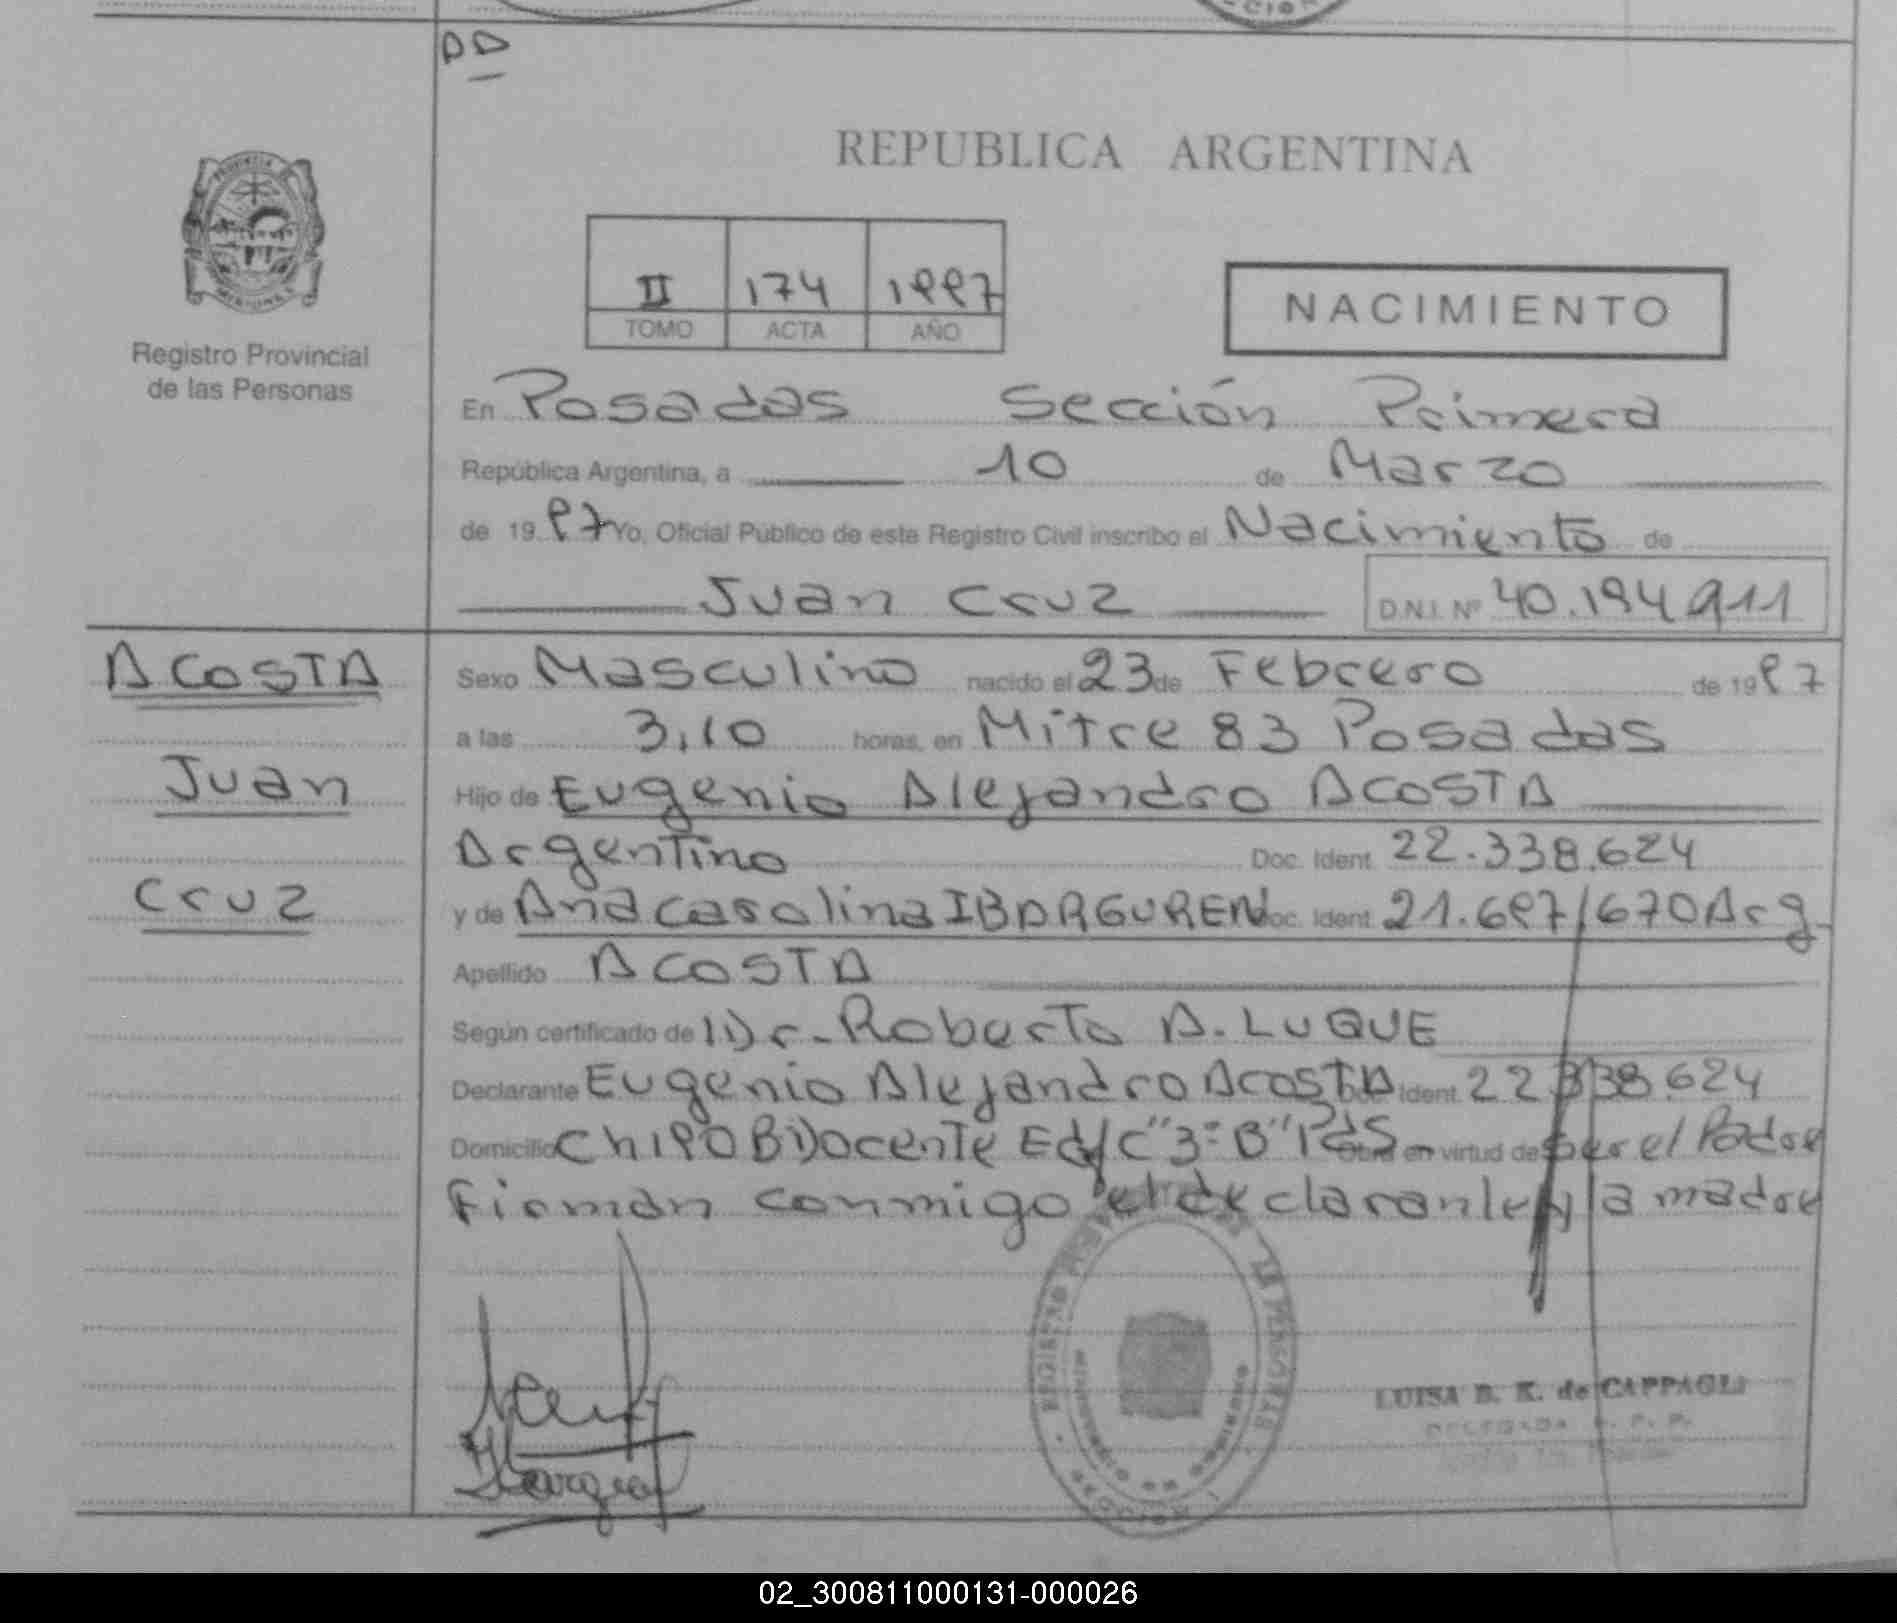 DD
REPUBLICA ARGENTINA
II 174 1997
TOMO ACTA AÑO
NACIMIENTO
Registro Provincial
de las Personas
En Posadas Sección Primera
República Argentina, a 10 de Marzo
de 1997 Yo, Oficial Público de este Registro Civil inscribo el Nacimiento de
Juan Cruz D.N.I. Nº 40.194.911
ACOSTA
Juan
Cruz
Sexo Masculino nacido el 23 de Febrero de 1997
a las 3,10 horas, en Mitre 83 Posadas
Hijo de Eugenio Alejandro ACOSTA
Argentino Doc. Ident. 22.338.624
y de Ana Carolina IBARGUREN Doc. Ident. 21.697/670 Arg.
Apellido ACOSTA
Según certificado de Dr. Roberto A. LUQUE
Declarante Eugenio Alejandro Acosta Doc. Ident. 22.338.624
Domicilio Ch 190 B Docente Ed/C "3= B" Pdas Obra en virtud de Ser el Padre
Firman conmigo el declarante y la madre
REGISTRO DE LAS PERSONAS
SECCION
LUISA B. K. de CAPPAGLI
DELEGADA R. P. P.
02_300811000131-000026